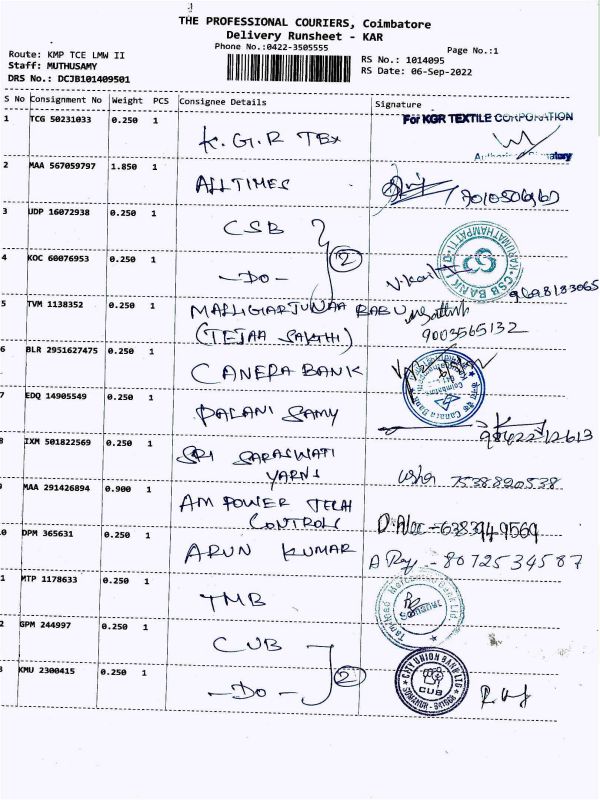 THE PROFESSIONAL COURIERS, Coimbatore
Delivery Runsheet - KAR
Phone No.:0422-3505555
Page No.:1
Route: KMP TCE LMW II
Staff: MUTHUSAMY
DRS No.: DCJB101409501
RS No.: 1014095
RS Date: 06-Sep-2022
S No Consignment No Weight PCS Consignee Details Signature
1 TCG 50231033 0.250 1 K.G.R TEX For KGR TEXTILE CORPORATION
2 MAA 567059797 1.850 1 ALLTIMES
3 UDP 16072938 0.250 1 CSB
4 KOC 60076953 0.250 1 -DO- 2
CSB BANK
5 TVM 1138352 0.250 1 MALLIGIARJUNAA BABU
(TEJAA SAKTHI) 9003565132
6 BLR 2951627475 0.250 1 CANERA BANK
Canara Bank
7 EDQ 14905549 0.250 1 PALANI SAMY
8 IXM 501822569 0.250 1 SRI SARASWATI
YARNS Usha 7538820538
9 MAA 291426894 0.900 1 AM POWER TECH
CONTROLS 638394 9569
0 DPM 365631 0.250 1 ARUN KUMAR 8072534587
1 MTP 1178633 0.250 1 TMB
Tamilnad Mercantile Bank Ltd.
2 GPM 244997 0.250 1 CUB
CITY UNION BANK LTD
CUB
3 KMU 2300415 0.250 1 -DO- 2